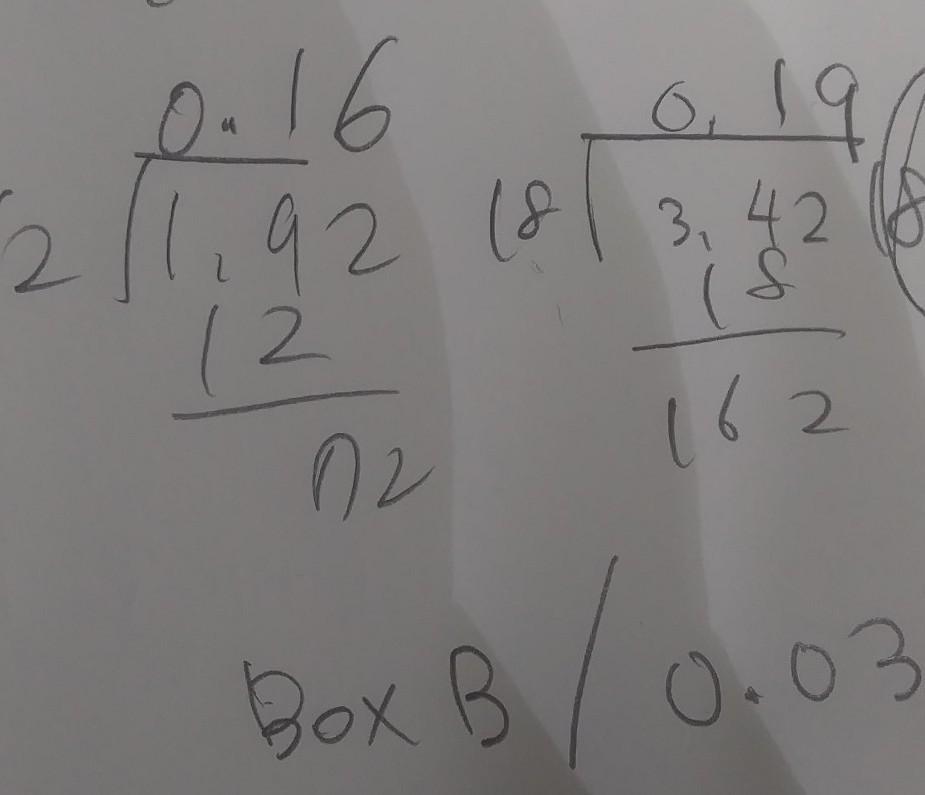 0.16 0.19
2 1.92 18 3.42
12 18
72 162
Box B / 0.03